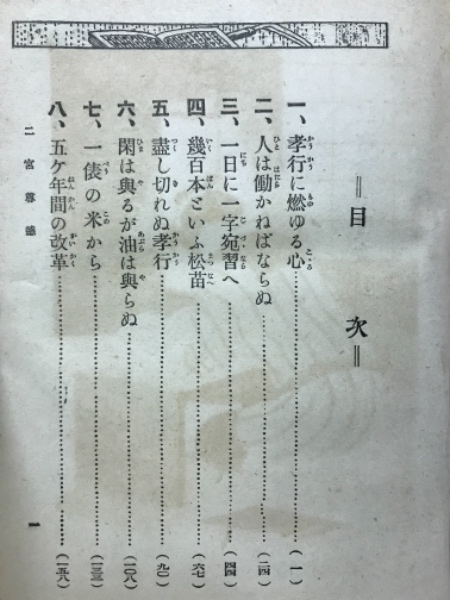 ＝目次＝
一、孝行に燃ゆる心……(一)
二、人は働かねばならぬ……(二四)
三、一日に一字宛習へ……(四四)
四、幾百本といふ松苗……(六七)
五、盡し切れぬ孝行……(九〇)
六、閑は與るが油は與らぬ……(一〇八)
七、一俵の米から……(一三三)
八、五ケ年間の改革……(一五八)
二宮尊德
一